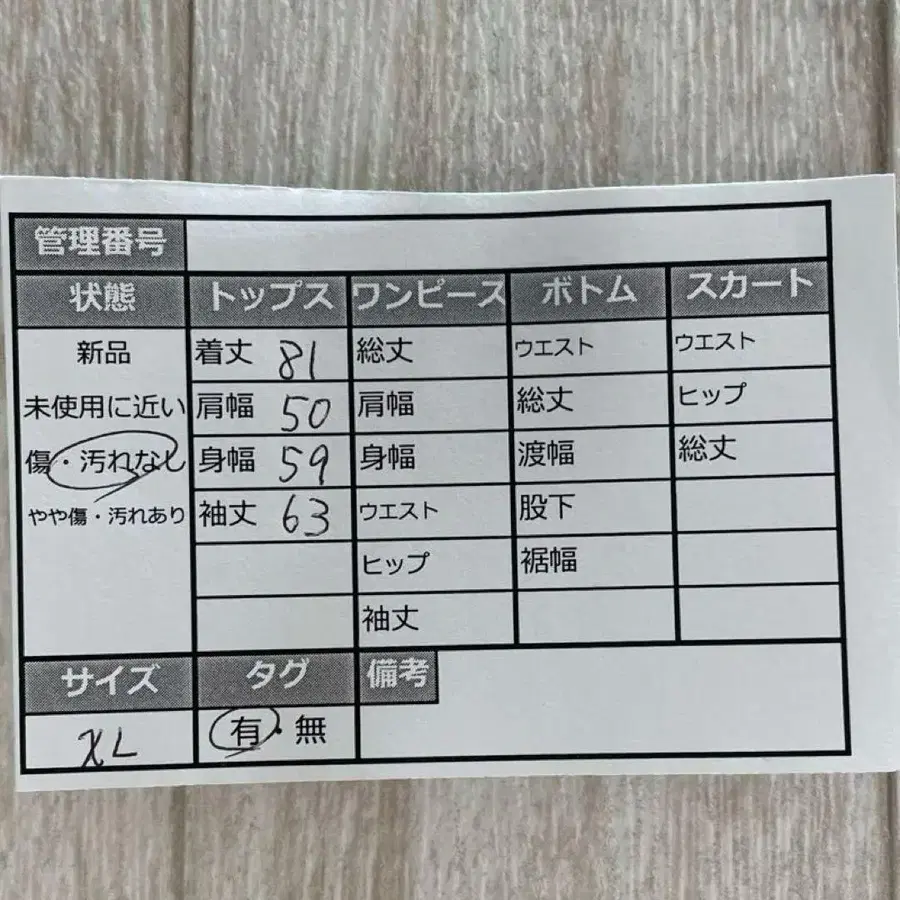 管理番号
状態 トップス ワンピース ボトム スカート
新品 着丈 81 総丈 ウエスト ウエスト
未使用に近い 肩幅 50 肩幅 総丈 ヒップ
傷・汚れなし 身幅 59 身幅 渡幅 総丈
やや傷・汚れあり 袖丈 63 ウエスト 股下
ヒップ 裾幅
袖丈
サイズ タグ 備考
XL 有・無